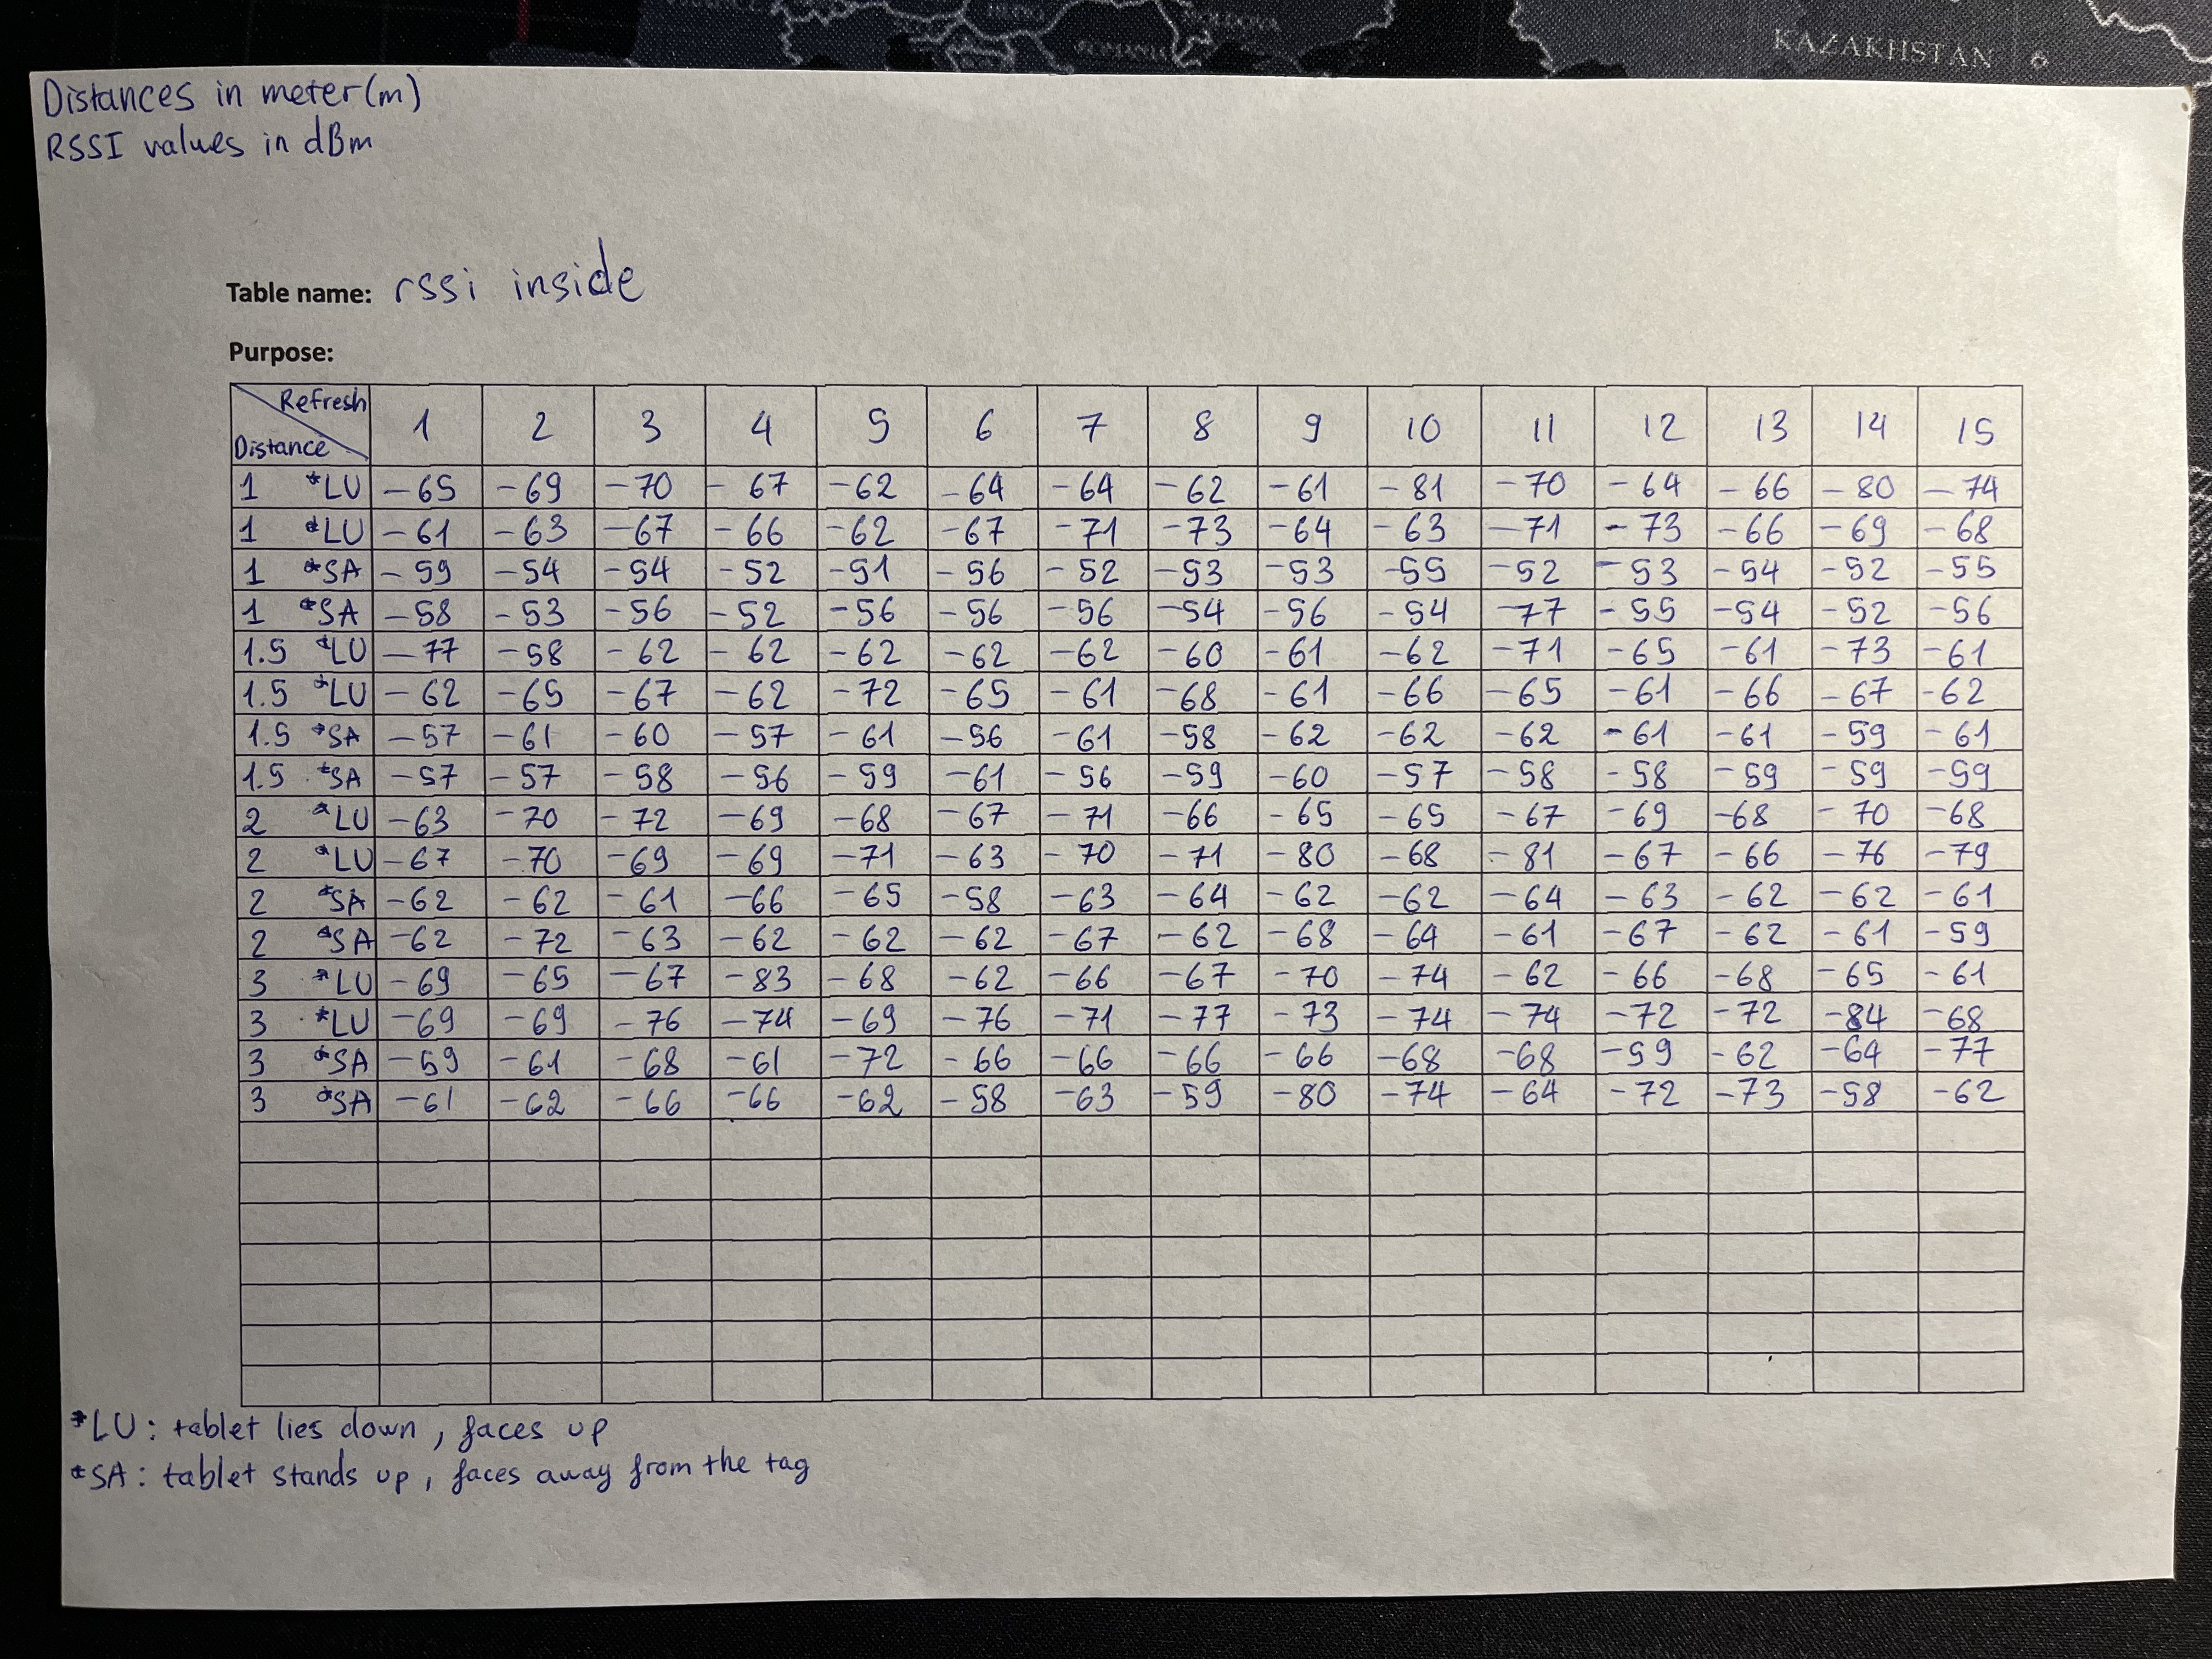 KAZAKHSTAN
MOLDOVA
ROMANIA
Distances in meter(m)
RSSI values in dBm
Table name: rssi inside
Purpose:
Refresh
Distance 1 2 3 4 5 6 7 8 9 10 11 12 13 14 15
1 *LU -65 -69 -70 -67 -62 -64 -64 -62 -61 -81 -70 -64 -66 -80 -74
1 *LU -61 -63 -67 -66 -62 -67 -71 -73 -64 -63 -71 -73 -66 -69 -68
1 *SA -59 -54 -54 -52 -51 -56 -52 -53 -53 -55 -52 -53 -54 -52 -55
1 *SA -58 -53 -56 -52 -56 -56 -56 -54 -56 -54 -77 -55 -54 -52 -56
1.5 *LU -77 -58 -62 -62 -62 -62 -62 -60 -61 -62 -71 -65 -61 -73 -61
1.5 *LU -62 -65 -67 -62 -72 -65 -61 -68 -61 -66 -65 -61 -66 -67 -62
1.5 *SA -57 -61 -60 -57 -61 -56 -61 -58 -62 -62 -62 -61 -61 -59 -61
1.5 *SA -57 -57 -58 -56 -59 -61 -56 -59 -60 -57 -58 -58 -59 -59 -59
2 *LU -63 -70 -72 -69 -68 -67 -71 -66 -65 -65 -67 -69 -68 -70 -68
2 *LU -67 -70 -69 -69 -71 -63 -70 -71 -80 -68 -81 -67 -66 -76 -79
2 *SA -62 -62 -61 -66 -65 -58 -63 -64 -62 -62 -64 -63 -62 -62 -61
2 *SA -62 -72 -63 -62 -62 -62 -67 -62 -68 -64 -61 -67 -62 -61 -59
3 *LU -69 -65 -67 -83 -68 -62 -66 -67 -70 -74 -62 -66 -68 -65 -61
3 *LU -69 -69 -76 -74 -69 -76 -71 -77 -73 -74 -74 -72 -72 -84 -68
3 *SA -59 -61 -68 -61 -72 -66 -66 -66 -66 -68 -68 -59 -62 -64 -77
3 *SA -61 -62 -66 -66 -62 -58 -63 -59 -80 -74 -64 -72 -73 -58 -62
*LU: tablet lies down, faces up
*SA: tablet stands up, faces away from the tag